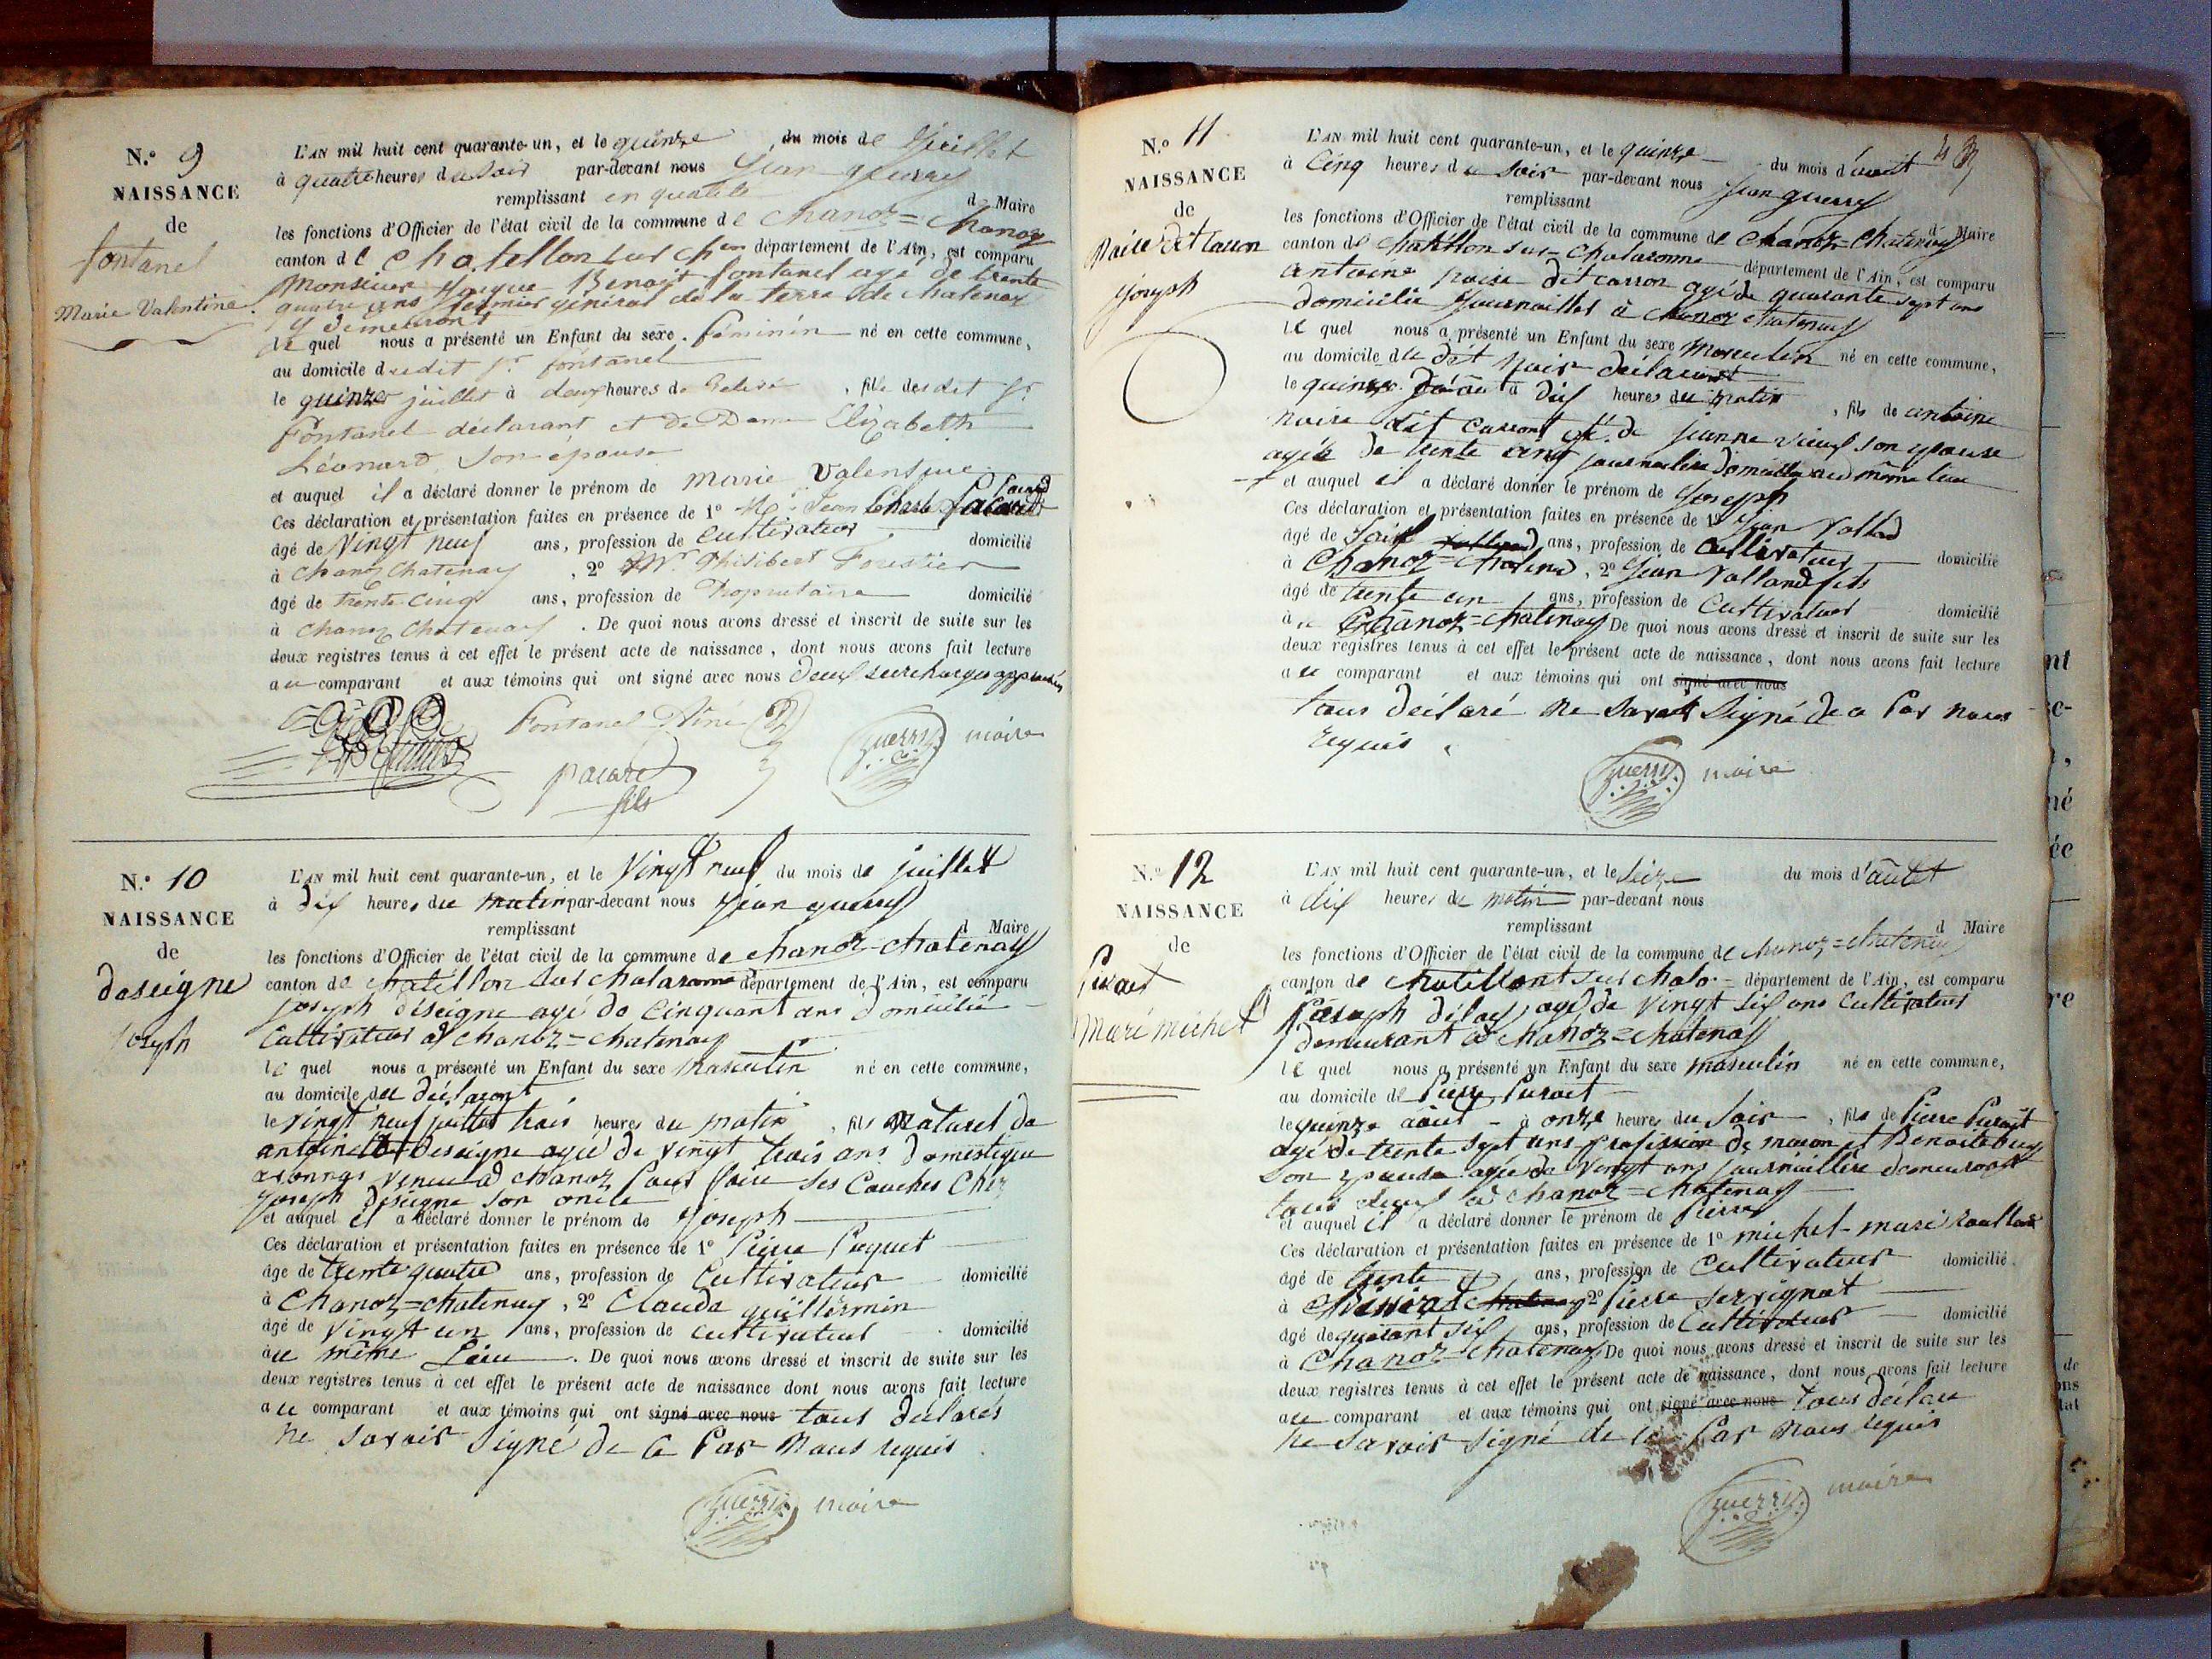 N.º 9
NAISSANCE
de
fontanel
Marie Valentine
L'AN mil huit cent quarante-un, et le quinze du mois de Juillet
à quatre heures du Soir par-devant nous Jean guerry
remplissant en qualité d Maire
les fonctions d'Officier de l'état civil de la commune de Chanoz=Chanoz
canton de Chatellon sur Chon département de l'Ain, est comparu
Monsieur Benoit fontanel agé de trente
quatre ans fermier général de la terre de Chatenay
y demeurant
le quel nous a présenté un Enfant du sexe féminin né en cette commune,
au domicile dudit Sr fontanel
le quinze juillet à deux heures de , fille dudit Sr
Fontanel déclarant et de Dame Elizabeth
Léonard son épouse
et auquel il a déclaré donner le prénom de Marie Valentine
Ces déclaration et présentation faites en présence de 1º Mr Jean Charle Pacard
âgé de Vingt neuf ans, profession de Cultivateur domicilié
à Chanoz Chatenay , 2º Mr Philibert Forestier
âgé de trente cinq ans, profession de Propriétaire domicilié
à Chanoz Chatenay . De quoi nous avons dressé et inscrit de suite sur les
deux registres tenus à cet effet le présent acte de naissance, dont nous avons fait lecture
au comparant et aux témoins qui ont signé avec nous deux surcharges approuvées
Fontanel Aîné
Guerry maire
pacard
fils
N.º 10
NAISSANCE
de
deseigne
Joseph
L'AN mil huit cent quarante-un, et le Vingt neuf du mois de juillet
à dix heures du matin par-devant nous Jean guerry
remplissant d Maire
les fonctions d'Officier de l'état civil de la commune de Chanoz-Chatenay
canton de Chatillon sur Chalaronne département de l'Ain, est comparu
joseph déseigne agé de Cinquant ans domicilié
Cultivateur à Chanoz=chatenay
le quel nous a présenté un Enfant du sexe masculin né en cette commune,
au domicile du déclarant
le vingt neuf juillet trois heures du matin , fils naturel de
antoinette deseigne agée de vingt trois ans domestique
a vonnas venue à Chanoz pour faire ses Couches Chez
joseph déseigne son oncle
et auquel il a déclaré donner le prénom de joseph
Ces déclaration et présentation faites en présence de 1º Pierre Puquet
âgé de trente quatre ans, profession de Cultivateur domicilié
à Chanoz=chatenay , 2º Claude guillermin
âgé de vingt un ans, profession de cultivateur domicilié
au même Lieu . De quoi nous avons dressé et inscrit de suite sur les
deux registres tenus à cet effet le présent acte de naissance dont nous avons fait lecture
au comparant et aux témoins qui ont signé avec nous tous déclarés
ne savoir signé de ce Par Nous requis
Guerry maire
N.º 11
NAISSANCE
de
joseph
L'AN mil huit cent quarante-un, et le quinze du mois d'août
à Cinq heures du soir par-devant nous Jean guerry
remplissant d Maire
les fonctions d'Officier de l'état civil de la commune de Chanoz=Chatenay
canton de Chatillon sur Chalaronne département de l'Ain, est comparu
antoine dit carron agé de quarante sept ans
domicilié journaillier à Chanoz Chatenay
le quel nous a présenté un Enfant du sexe masculin né en cette commune,
au domicile du dit déclarant
le quinze d'août à dix heures du matin , fils de antoine
dit Carront et de jeanne vieux son epouse
agée de trente cinq journalière domicilié au même lieu
et auquel il a déclaré donner le prénom de Joseph
Ces déclaration et présentation faites en présence de 1º Jean Volland
âgé de ans, profession de Cultivateur domicilié
à Chanoz=Chatenay , 2º Jean Volland fils
âgé de trente un ans, profession de Cultivateur domicilié
à Chanoz=Chatenay De quoi nous avons dressé et inscrit de suite sur les
deux registres tenus à cet effet le présent acte de naissance, dont nous avons fait lecture
au comparant et aux témoins qui ont signé avec nous
tous déclaré ne savoir signé de ce Par nous
requis
Guerry maire
N.º 12
NAISSANCE
de
Purait
Mari michel
L'AN mil huit cent quarante-un, et le seize du mois d'août
à dix heures du matin par-devant nous
remplissant d Maire
les fonctions d'Officier de l'état civil de la commune de Chanoz=chatenay
canton de Chatillont sur Chala. département de l'Ain, est comparu
joseph délay agé de vingt six ans Cultivateur
demeurant à Chanoz=chatenay
le quel nous a présenté un Enfant du sexe masculin né en cette commune,
au domicile de Pierre Purait
le quinze août - à onze heures du Soir , fils de Pierre Purait
agé de trente sept ans profession de macon et Benoite
Son epouse agée de Vingt ans journaillière demeurant
tous deux à Chanoz=chatenay
et auquel il a déclaré donner le prénom de Pierre
Ces déclaration et présentation faites en présence de 1º michel-mari
âgé de trente ans, profession de Cultivateur domicilié
à 2º Pierre Servignat
âgé de quarant six ans, profession de Cultivateur domicilié
à Chanoz-Chatenay De quoi nous avons dressé et inscrit de suite sur les
deux registres tenus à cet effet le présent acte de naissance, dont nous avons fait lecture
au comparant et aux témoins qui ont signé avec nous tous déclaré
ne savoir signé de ce Par nous requis
Guerry maire